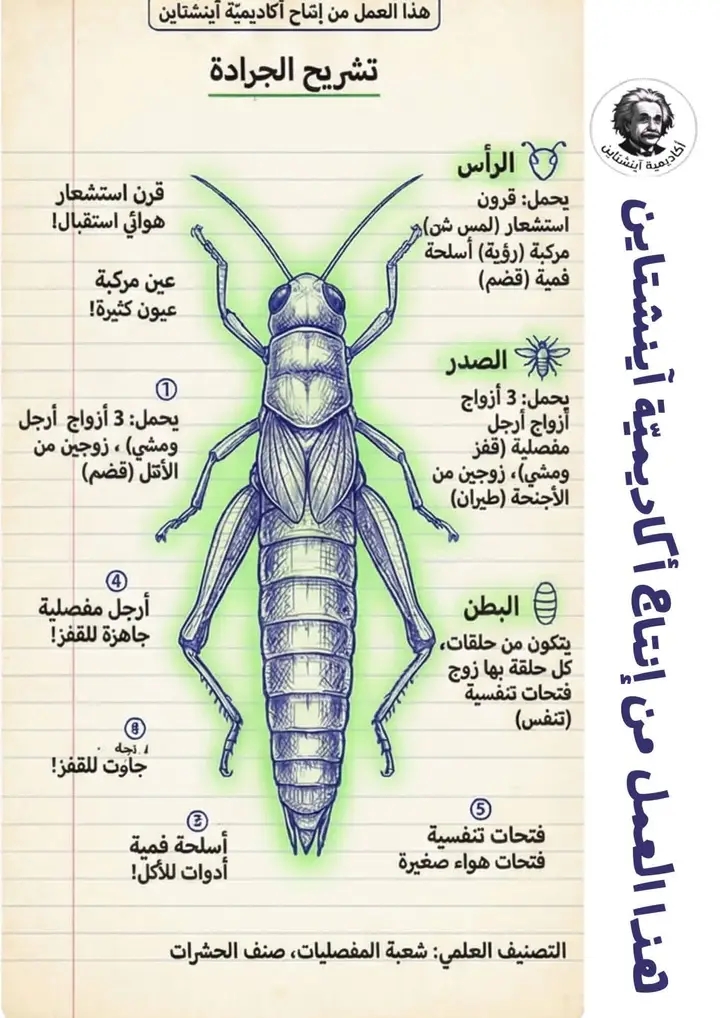 هذا العمل من إنتاج أكاديميّة آينشتاين
تشريح الجرادة
أكاديمية آينشتاين
الرأس
يحمل: قرون
استشعار (لمس شن)
مركبة (رؤية) أسلحة
فمية (قضم)
قرن استشعار
هوائي استقبال!
عين مركبة
عيون كثيرة!
الصدر
يحمل: 3 أزواج
أزواج أرجل
مفصلية (قفز
ومشي)، زوجين من
الأجنحة (طيران)
1
يحمل: 3 أزواج أرجل
ومشي) ، زوجين من
(قضم)
4
أرجل مفصلية
جاهزة للقفز!
البطن
يتكون من حلقات،
كل حلقة بها زوج
فتحات تنفسية
(تنفس)
للقفز!
أسلحة فمية
أدوات للأكل!
5
فتحات تنفسية
فتحات هواء صغيرة
التصنيف العلمي: شعبة المفصليات، صنف الحشرات
هذا العمل من إنتاج أكاديميّة آينشتاين